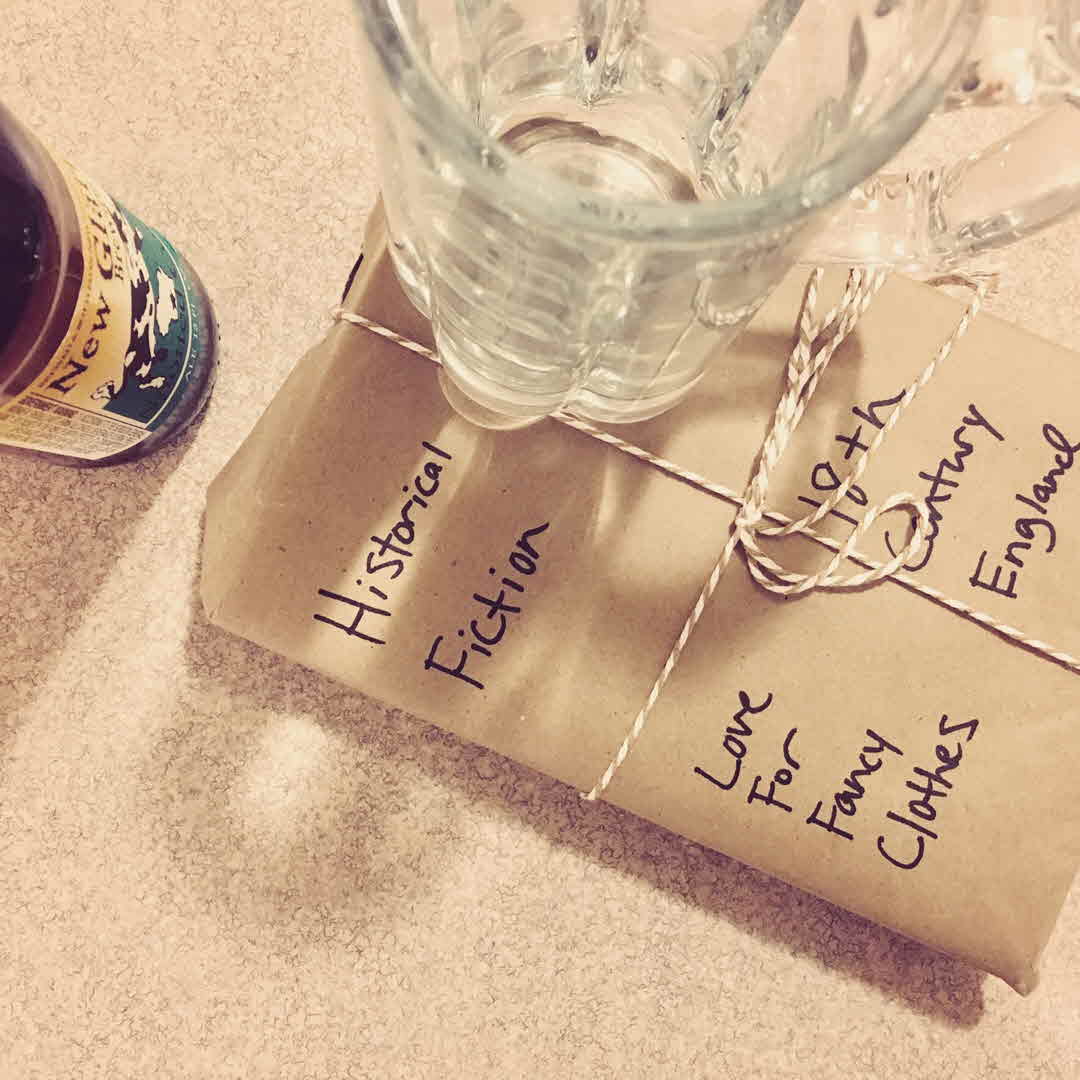 Historical
Fiction
18th
Century
England
Love
For
Fancy
Clothes
New